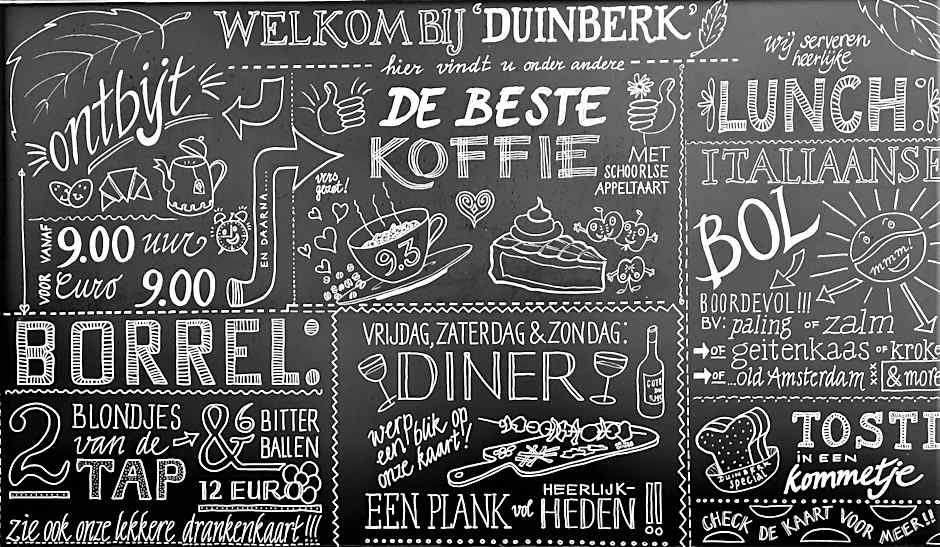 WELKOM BIJ 'DUINBERK'
hier vindt u onder andere
ontbijt
VANAF 9.00 uur
VOOR euro 9.00
EN DAARNA....
DE BESTE
KOFFIE
MET
SCHOORLSE
APPELTAART
vers
gezet!
9.3
wij serveren
heerlijke
LUNCH:
ITALIAANSE
BOL
mmm!
BOORDEVOL!!!
BV: paling OF zalm
OF geitenkaas OF kroke
OF ...old Amsterdam xxx & more
BORREL:
2 BLONDJES
van de
TAP
& 6 BITTER
BALLEN
12 EURO
zie ook onze lekkere drankenkaart!!!
VRIJDAG, ZATERDAG & ZONDAG:
DINER
werp
een blik op
onze kaart!
EEN PLANK vol HEERLIJK-
HEDEN!!!
TOSTI
IN EEN
kommetje
SPECIAL
CHECK DE KAART VOOR MEER!!